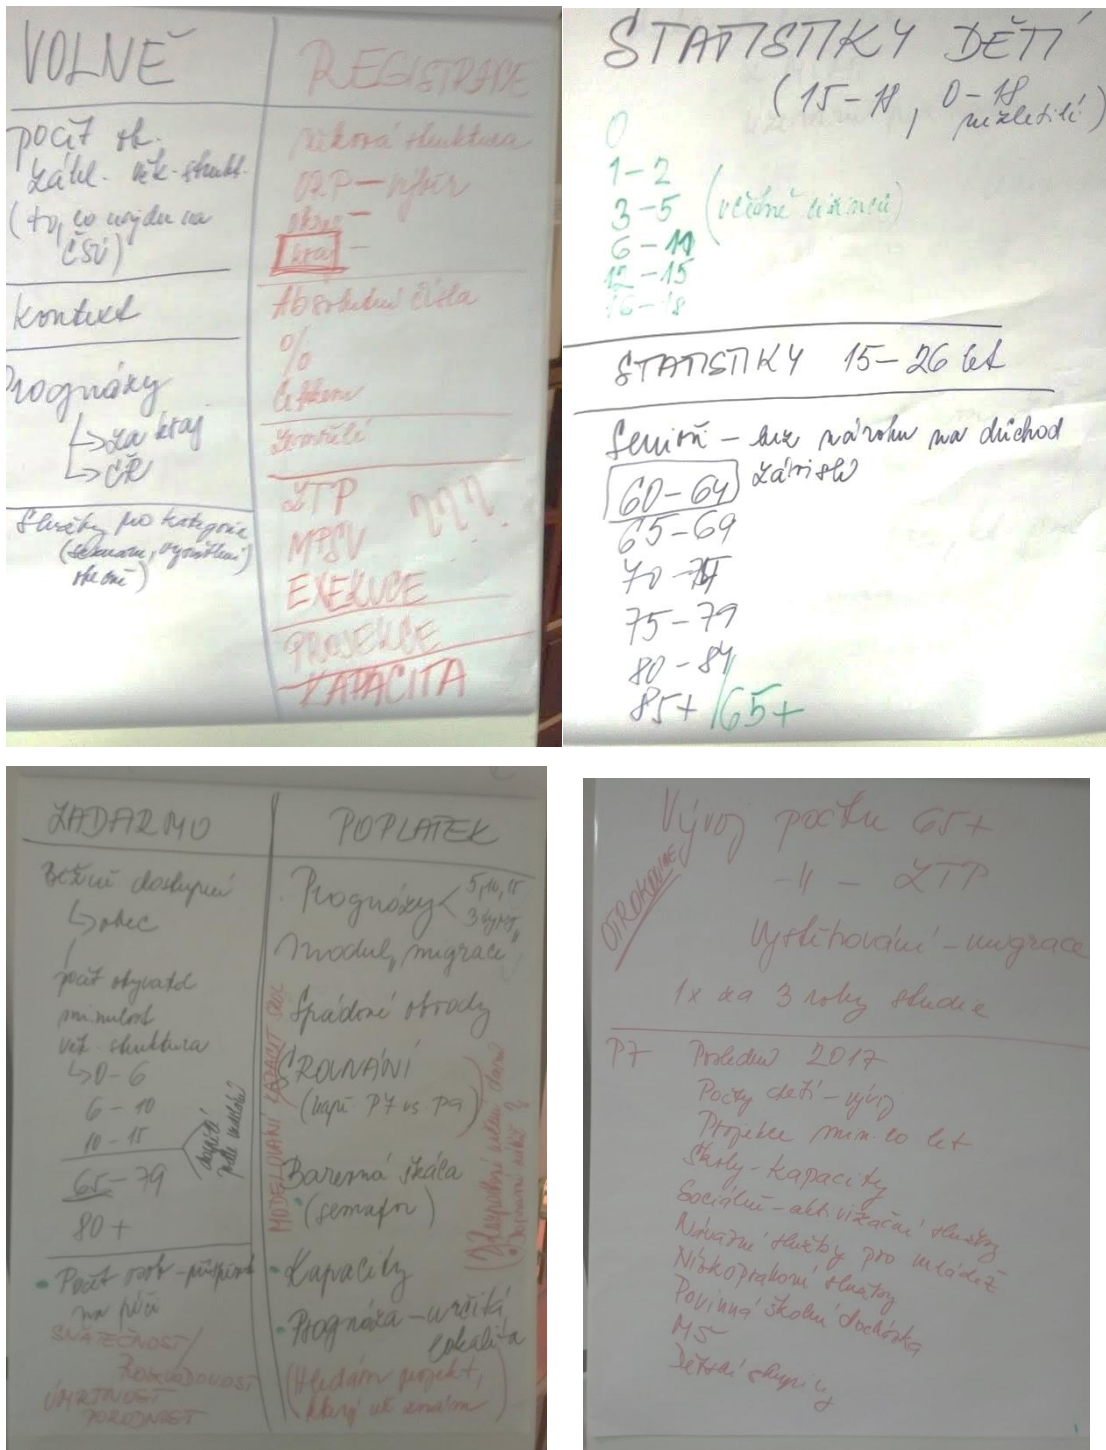 VOLNĚ
počet ob.
zákl. věk. strukt.
(to, co najdu na
ČSÚ)
kontext
Prognózy
↳ za kraj
↳ ČR
Služby pro kategorie
REGISTRACE
věková struktura
ORP – výběr
okres –
kraj –
Absolutní čísla
%
Celkem
ZTP
???
MPSV
EXEKUCE
PROJEKCE
KAPACITA
STATISTIKY DĚTÍ
(15–18, 0–18
nezletilí)
0
1–2
3–5
6–11
12–15
16–18
STATISTIKY 15–26 let
Senioři – bez nároku na důchod
60–64
65–69
70–74
75–79
80–84
85+ /65+
ZADARMO
Běžně dostupné
↳ obec
počet obyvatel
minulost
věk. struktura
↳ 0–6
6–10
10–15
65–79
80+
Počet osob – příspěvek
na péči
SŇATEČNOST/
ROZVODOVOST
ÚMRTNOST
PORODNOST
POPLATEK
Prognózy < 5, 10, 15
modul migrace
Spádové obvody
SROVNÁNÍ
(např. P7 vs. P9)
MODELOVÁNÍ KAPACIT
Barevná škála
(semafor)
Kapacity
Prognóza – určitá
lokalita
(Hledám projekt,
který už znám)
Vývoj počtu 65+
–〃– ZTP
OTROKOVICE
Vystěhování – migrace
1x za 3 roky studie
P7 Poslední 2017
Počty dětí – vývoj
Projekce min. 20 let
Školy – kapacity
Sociálně – aktivizační služby
Návazné služby pro mládež
Nízkoprahové služby
Povinná školní docházka
MŠ
Dětské skupiny